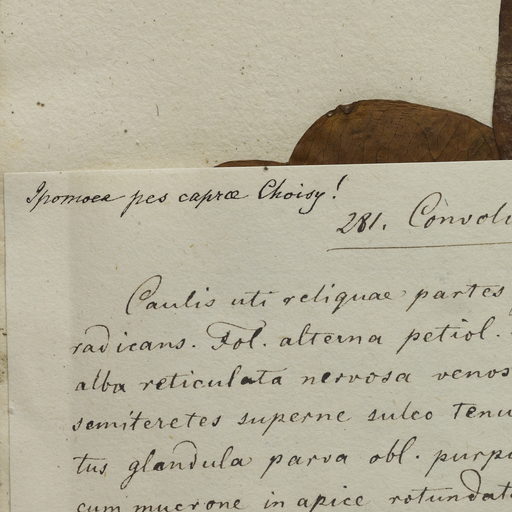 Ipomoea pes caprae Choisy!
281. Convolv
Caulis uti reliquae partes
radicans. Fol. alterna petiol.
alba reticulata nervosa venos
semiteretes superne sulco tenu
tus glandula parva obl. purpu
cum mucrone in apice rotundat